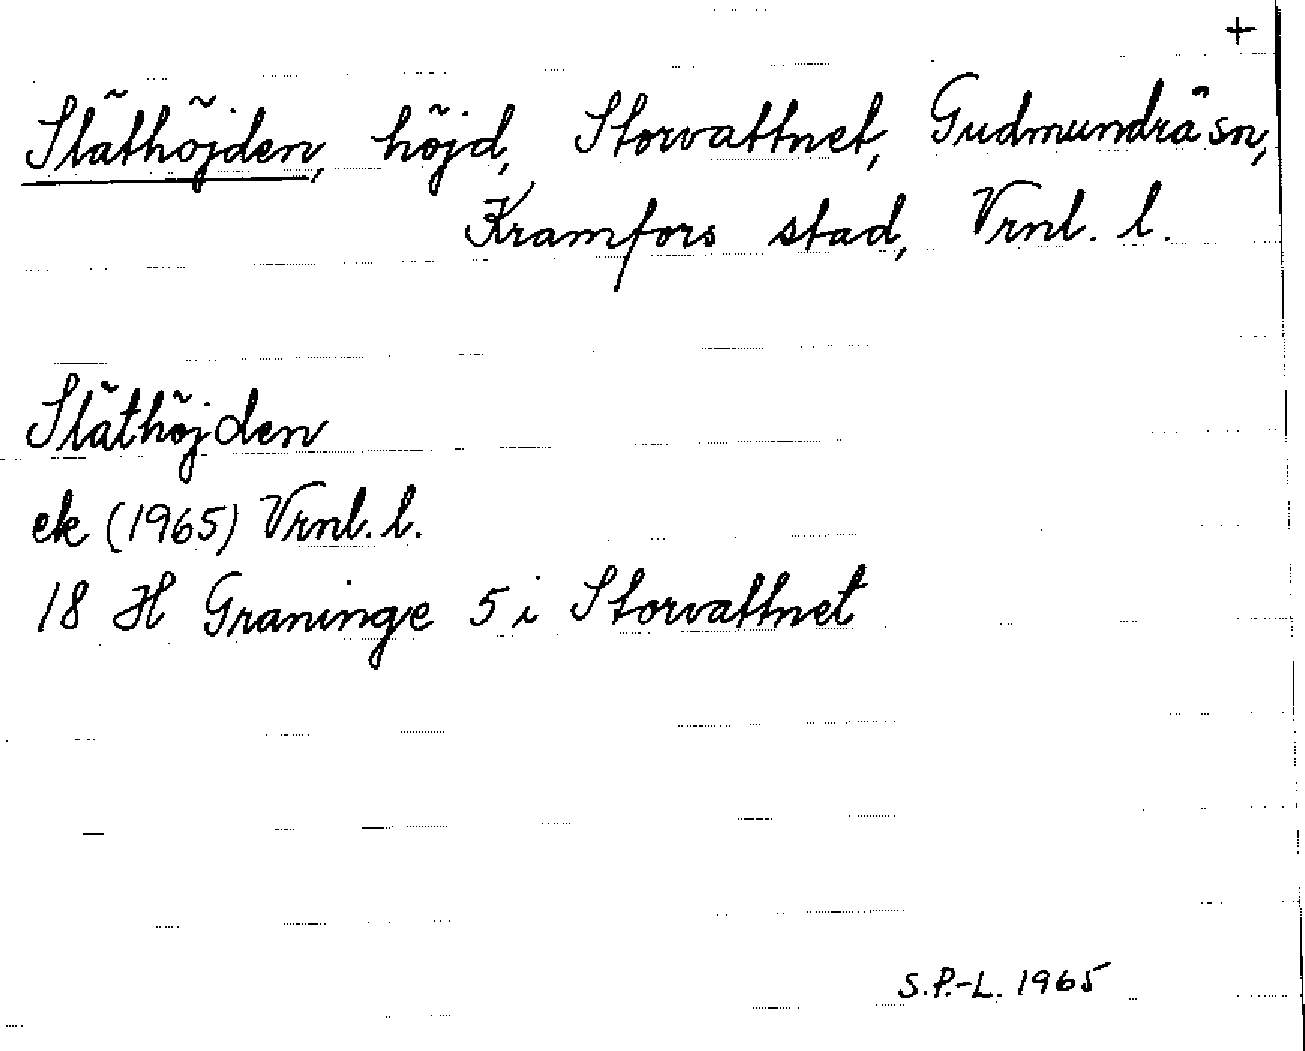 +
Släthöjden, höjd, Storvattnet, Gudmundrå sn,
Kramfors stad, Vrnl. l.
Släthöjden
ek (1965) Vrnl. l.
18 H Graninge 5 i Storvattnet
S.P.-L. 1965